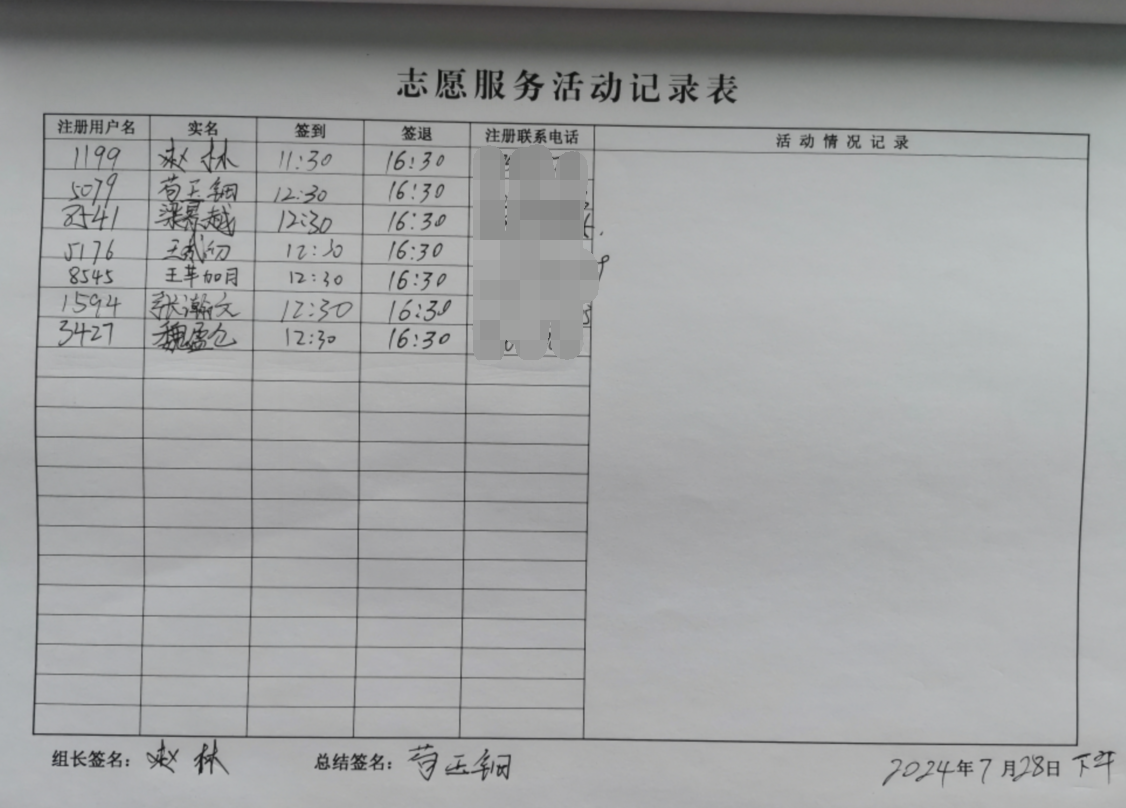 志愿服务活动记录表
注册用户名 实名 签到 签退 注册联系电话 活动情况记录
1199 赵林 11:30 16:30
5079 荀玉钢 12:30 16:30
8541 梁慕越 12:30 16:30
5176 王 12:30 16:30
8545 王苹 12:30 16:30
1594 张瀚文 12:30 16:30
3427 魏盈仓 12:30 16:30
组长签名: 赵林 总结签名: 荀玉钢 2024年7月28日 下午